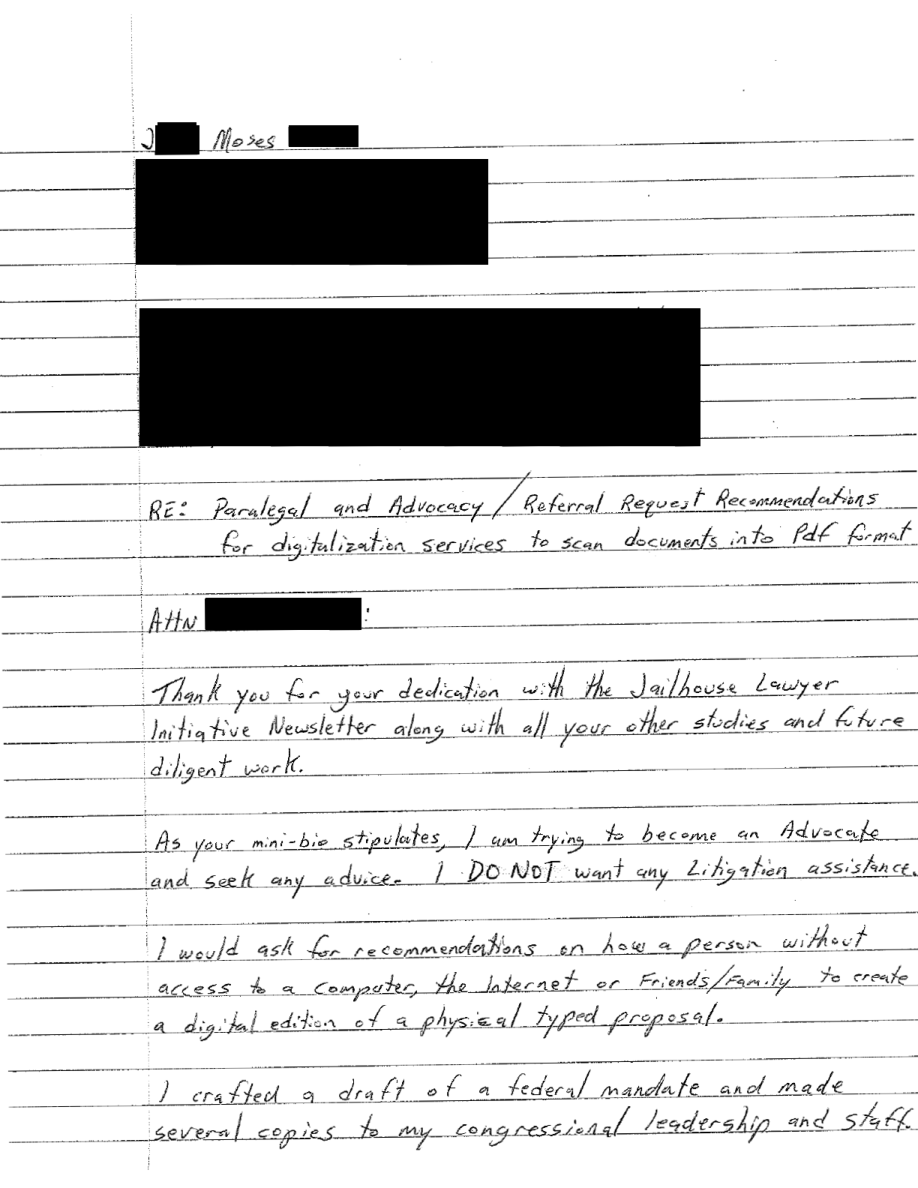 J Moses
RE: Paralegal and Advocacy / Referral Request Recommendations
for digitalization services to scan documents into Pdf format
Attn :
Thank you for your dedication with the Jailhouse Lawyer
Initiative Newsletter along with all your other studies and future
diligent work.
As your mini-bio stipulates, I am trying to become an Advocate
and seek any advice. I DO NOT want any Litigation assistance.
I would ask for recommendations on how a person without
access to a computer, the Internet or Friends/Family to create
a digital edition of a physical typed proposal.
I crafted a draft of a federal mandate and made
several copies to my congressional leadership and staff.